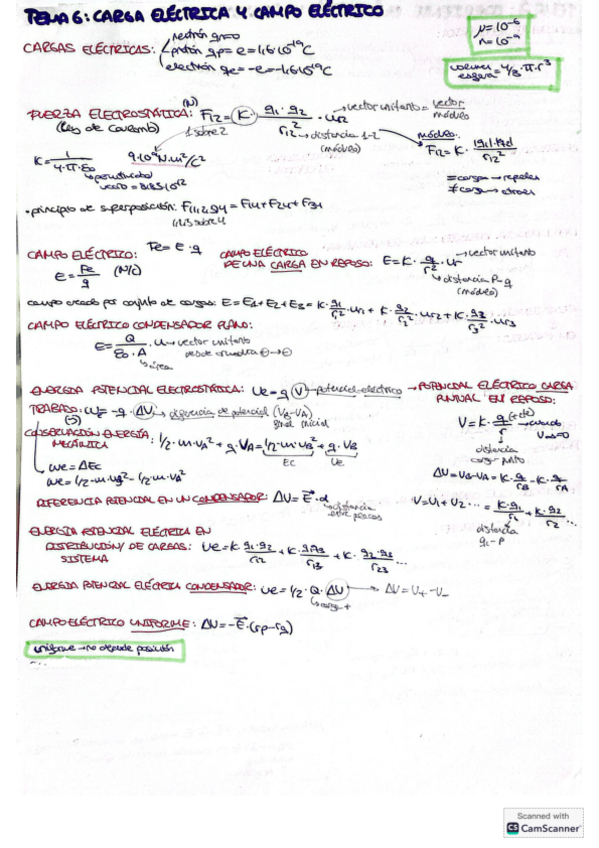 TEMA 6: CARGA ELÉCTRICA Y CAMPO ELÉCTRICO
μ=10⁻⁶
n=10⁻⁹
volumen esfera = 4/3·π·r³
CARGAS ELÉCTRICAS:
neutrón qn=0
protón qp=e=1,6·10⁻¹⁹C
electrón qe=-e=-1,6·10⁻¹⁹C
FUERZA ELECTROSTÁTICA: (N) F12 = K · q1·q2/r12² · ur2 → vector unitario = vector/módulo
(Ley de Coulomb) 1 sobre 2 → distancia 1-2 (módulo)
módulo: F12 = K · |q1|·|q2|/r12²
K = 1/4·π·ε0 9·10⁹ N·m²/C²
vacío = 8,85·10⁻¹²
= cargas → repelen
≠ cargas → atraen
• principio de superposición: F123,4 = F14+F24+F34
123 sobre 4
CAMPO ELÉCTRICO: Fe = E·q
E = Fe/q (N/C)
CAMPO ELÉCTRICO DE UNA CARGA EN REPOSO: E = K · q/r² · ur → vector unitario
→ distancia P-q (módulo)
campo creado por conjunto de cargas: E = E1+E2+E3 = K·q1/r1²·ur1 + K·q2/r2²·ur2 + K·q3/r3²·ur3
CAMPO ELÉCTRICO CONDENSADOR PLANO:
E = Q/ε0·A · u → vector unitario
desde ⊕ → ⊖
→ área
ENERGÍA POTENCIAL ELECTROSTÁTICA: Ue = q·V → potencial eléctrico → POTENCIAL ELÉCTRICO CARGA PUNTUAL EN REPOSO:
TRABAJO: We = -q·ΔV → diferencia de potencial (VB-VA)
(J) final inicial
V = K·q/r → cuando V∞=0
distancia carga-punto
CONSERVACIÓN ENERGÍA MECÁNICA: 1/2·m·vA² + q·VA = 1/2·m·vB² + q·VB
Ec Ue
We = ΔEc
We = 1/2·m·vB² - 1/2·m·vA²
ΔV = VB-VA = K·q/rB - K·q/rA
DIFERENCIA POTENCIAL EN UN CONDENSADOR: ΔV = E·d
→ distancia entre placas
V = V1+V2... = K·q1/r1 + K·q2/r2 ...
distancia q1-P
ENERGÍA POTENCIAL ELÉCTRICA EN
DISTRIBUCIÓN/ DE CARGAS: Ue = K·q1·q2/r12 + K·q1·q3/r13 + K·q2·q3/r23 ...
SISTEMA
ENERGÍA POTENCIAL ELÉCTRICA CONDENSADOR: Ue = 1/2·Q·ΔV → ΔV = V+ - V-
→ carga +
CAMPO ELÉCTRICO UNIFORME: ΔV = -E·(rP-rQ)
uniforme → no depende posición
...
Scanned with
CS CamScanner